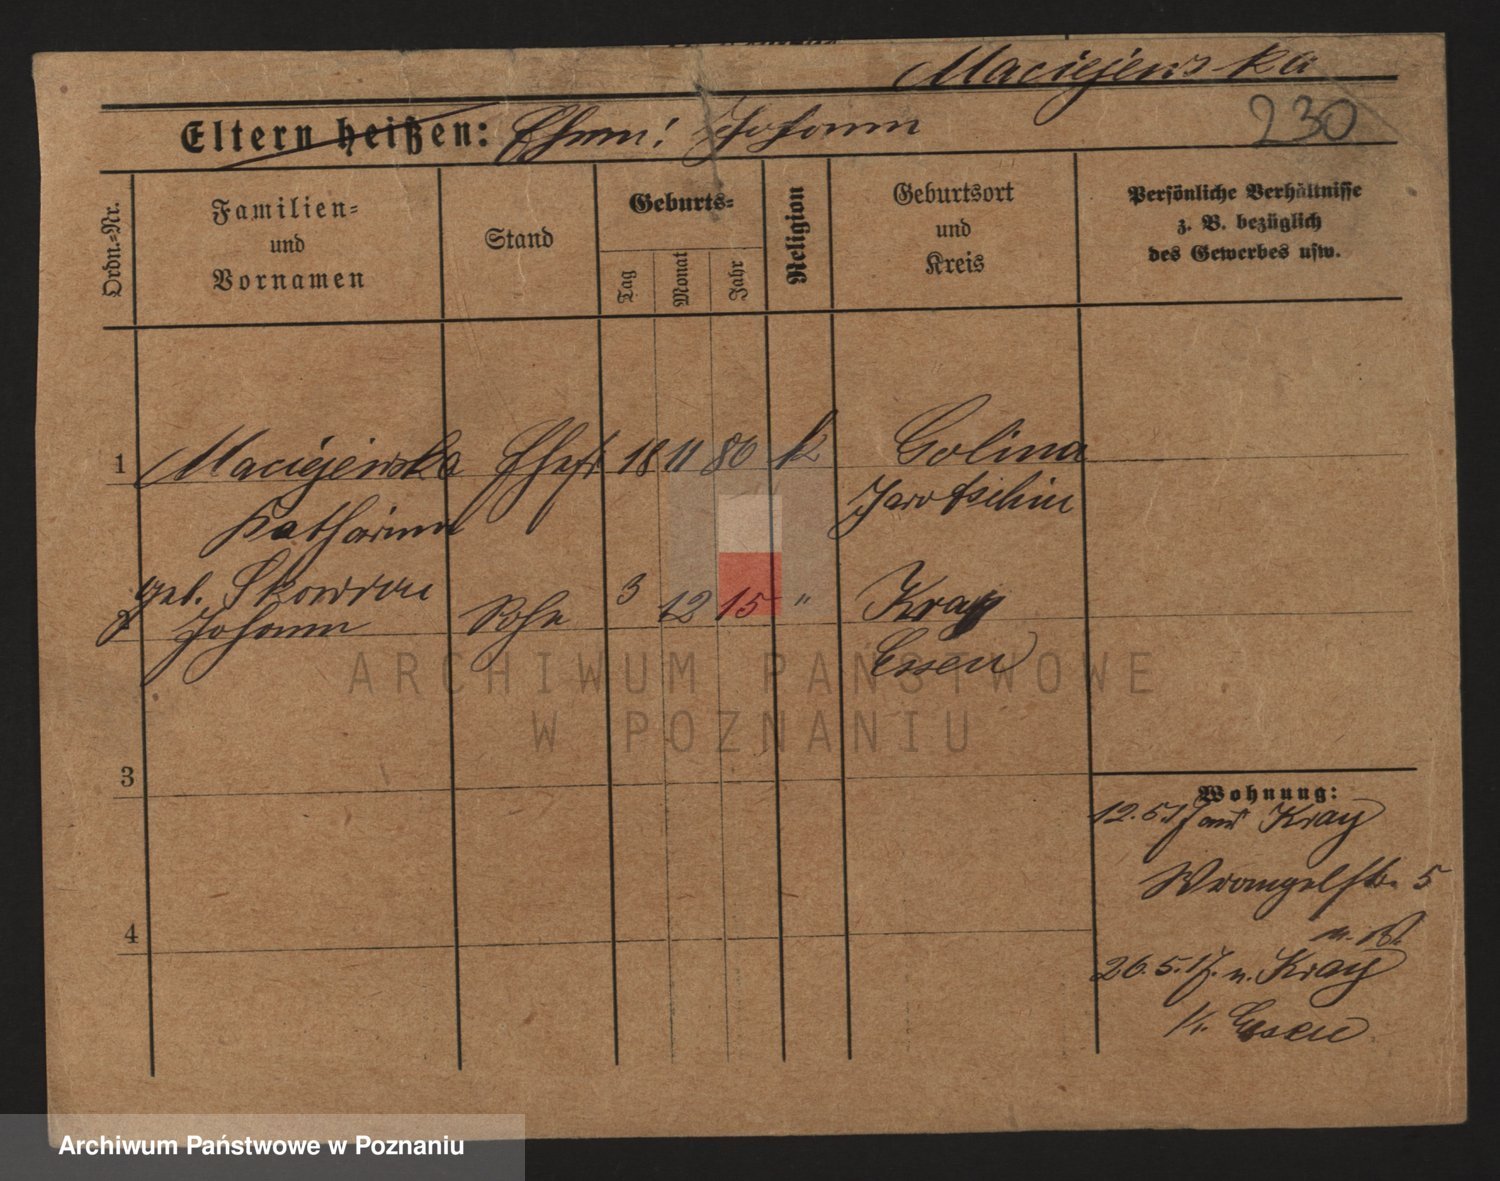 Maciejewska
Eltern heißen: Ehem: Johann
230
Ordn.-Nr.
Familien-
und
Vornamen
Stand
Geburts-
Tag
Monat
Jahr
Religion
Geburtsort
und
Kreis
Persönliche Verhältnisse
z. B. bezüglich
des Gewerbes usw.
1 Maciejewska Ehefr 18 11 80 k Golina
Katharina Jarotschin
geb. Skowron
Johann Sohn 3 12 15 " Kray
Essen
3
4
Wohnung:
12.5.17 aus Kray
Wrangelstr. 5
26.5.17. n. Kray
Kr. Essen
ARCHIWUM PAŃSTWOWE
W POZNANIU
Archiwum Państwowe w Poznaniu